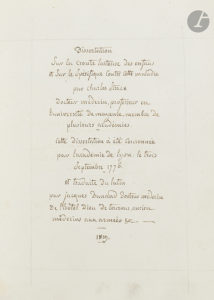 Dissertation
Sur la croute laiteuse des enfans
et Sur le Spécifique contre cette maladie
par charles
docteur médecin, professeur en
l'université de membre de
plusieurs académies.
cette dissertation a été couronnée
par l'académie de lyon, le trois
Septembre 1776
et traduite du latin
par jacques docteur médecin
de l'hôtel dieu de ancien
médecin aux armées &c.